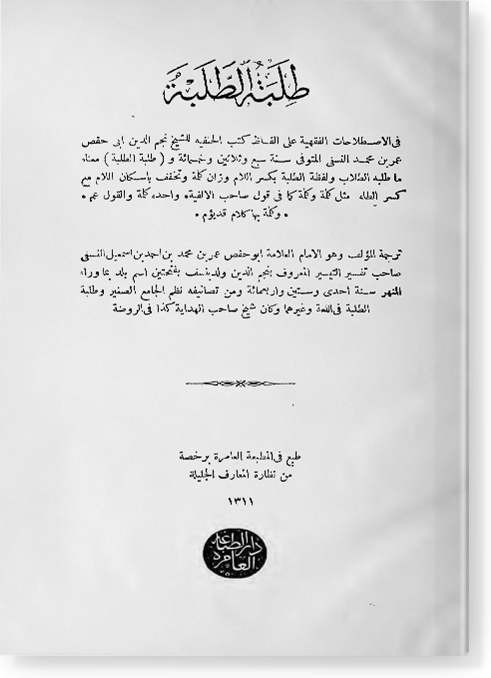 طِلْبَةُ الطَّلَبَةِ
فى الاصطلاحات الفقهية على الفاظ كتب الحنفيه للشيخ نجم الدين ابى حفص
عمر بن محمد النسفى المتوفى سنة سبع وثلاثين وخمسمائة و ( طلبة الطلبة ) معناه
ما طلبه الطلاب ولفظة الطلبة بكسر اللام وزان كلمة وتخفف باسكان اللام مع
كسر الطاء مثل كلمة وكلمة كما فى قول صاحب الالفية واحده كلمة والقول عم ٭
٭ وكلمة بها كلام قد يؤم ٭
ترجمة المؤلف وهو الامام العلامة ابو حفص عمر بن محمد بن احمد بن اسمعيل النسفى
صاحب تفسير التيسير المعروف بنجم الدين ولد بنسف بفتحتين اسم بلد بما وراء
النهر سنة احدى وستين واربعمائة ومن تصانيفه نظم الجامع الصغير وطلبة
الطلبة فى اللغة وغيرهما وكان شيخ صاحب الهداية كذا فى الروضة
طبع فى المطبعة العامرة برخصة
من نظارة المعارف الجليلة
١٣١١
دار الطباعة
العامره